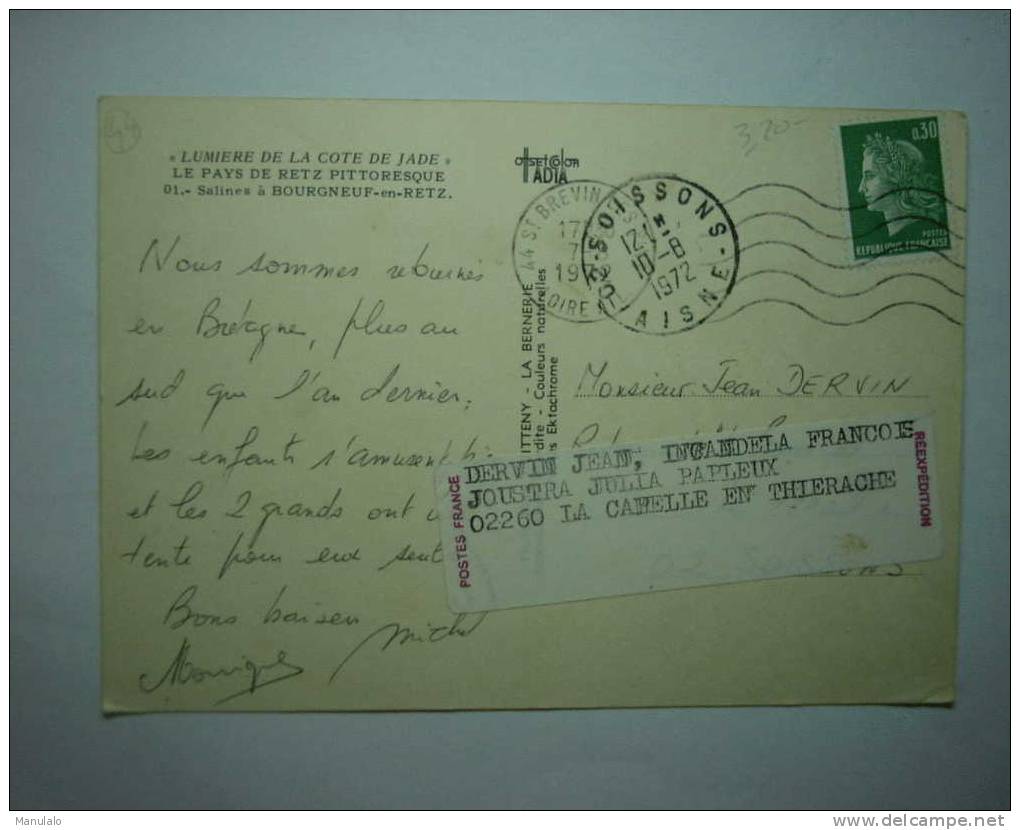 « LUMIERE DE LA COTE DE JADE »
LE PAYS DE RETZ PITTORESQUE
01.- Salines à BOURGNEUF-en-RETZ.
Nous sommes retournés
en Bretagne, plus au
sud que l'an dernier.
Les enfants s'amusent
et les 2 grands ont
tente pour eux
Bons baisers
Monique
Michel
OFFSETCOLOR
ADIA
ITTENY - LA BERNERIE
Couleurs naturelles
Ektachrome
44 ST BREVIN
1972
LOIRE
SOISSONS
10-8
1972
AISNE
3,20-
0,30
POSTES
REPUBLIQUE FRANCAISE
Monsieur Jean DERVIN
POSTES FRANCE
DERVIN JEAN, INCANDELA FRANCOIS
JOUSTRA JULIA PAPLEUX
02260 LA CAPELLE EN THIERACHE
RÉEXPÉDITION
Manulalo
www.delcampe.net